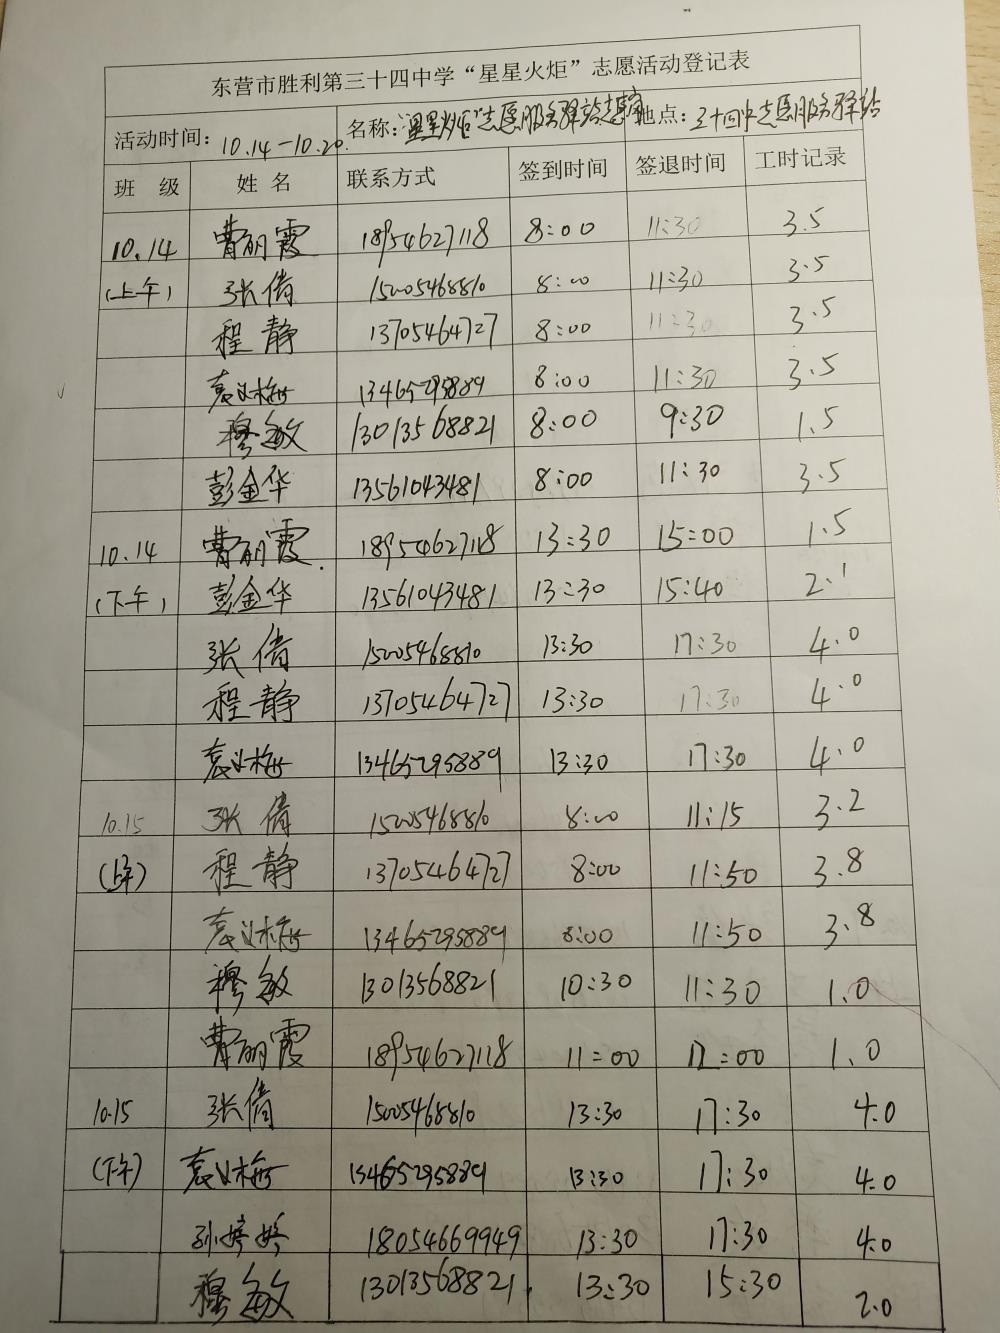 东营市胜利第三十四中学“星星火炬”志愿活动登记表
活动时间：10.14-10.20. 名称：星星火炬"志愿服务驿站志愿 地点：三十四中志愿服务驿站
班 级 姓 名 联系方式 签到时间 签退时间 工时记录
10.14 曹丽霞 18954627118 8:00 11:30 3.5
(上午) 张倩 15005468810 8:00 11:30 3.5
程静 13705464727 8:00 11:30 3.5
袁义梅 13465295889 8:00 11:30 3.5
穆敏 13013568821 8:00 9:30 1.5
彭金华 13561043481 8:00 11:30 3.5
10.14 曹丽霞. 18954627118 13:30 15:00 1.5
(下午) 彭金华 13561043481 13:30 15:40 2.1
张倩 15005468810 13:30 17:30 4.0
程静 13705464727 13:30 17:30 4.0
袁义梅 13465295889 13:30 17:30 4.0
10.15 张倩 15005468810 8:00 11:15 3.2
(上午) 程静 13705464727 8:00 11:50 3.8
袁义梅 13465295889 8:00 11:50 3.8
穆敏 13013568821 10:30 11:30 1.0
曹丽霞 18954627118 11:00 12:00 1.0
10.15 张倩 15005468810 13:30 17:30 4.0
(下午) 袁义梅 13465295889 13:30 17:30 4.0
孙婷婷 18054669949 13:30 17:30 4.0
穆敏 13013568821. 13:30 15:30 2.0